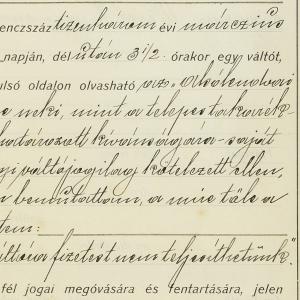 lenczszáz tizenhárom évi március
napján, dél után 3 1/2 órakor egy váltót,
ulsó oldalon olvasható az „Alsólendvai
e neki, mint a telepestakarék-
határozott kívánságára - saját
gi váltójogilag kötelezett ellen,
n bemutattam, a mire tőle a
tem:
áltóra fizetést nem teljesíthetünk".
fél jogai megóvására és fentartására, jelen